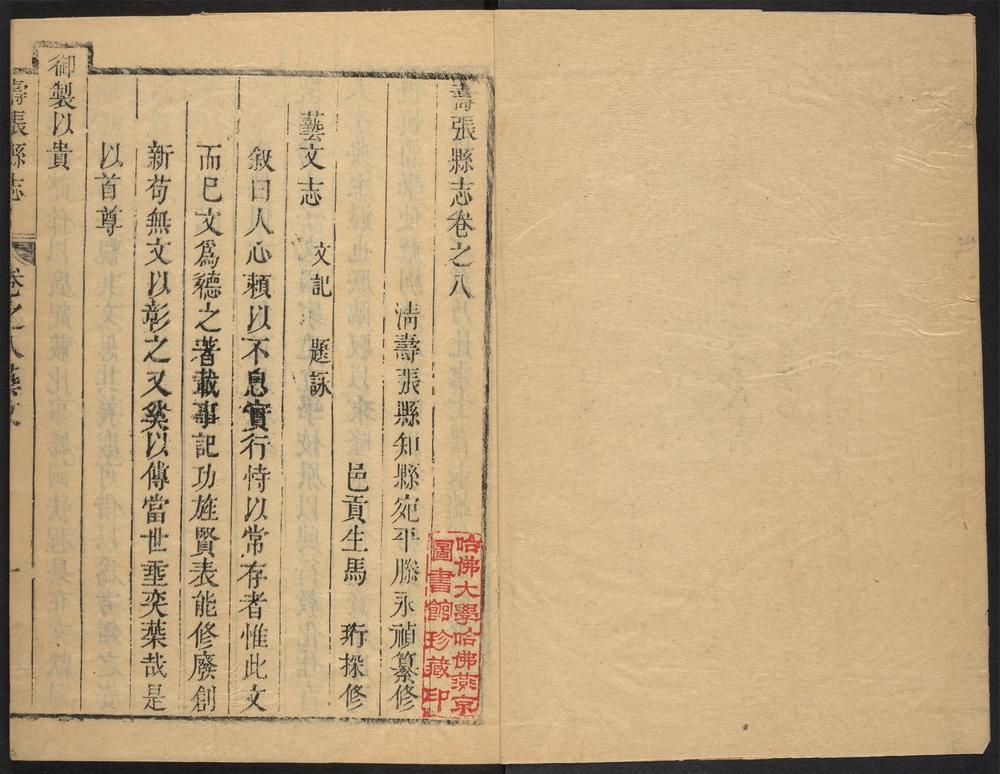 壽張縣志卷之八
清壽張縣知縣宛平滕永禎纂修
邑貢生馬珩採修
藝文志 文記 題詠
叙曰人心頼以不息實行恃以常存者惟此文
而已文爲德之著載事記功旌賢表能修廢創
新苟無文以彰之又奚以傳當世埀奕葉哉是
以首尊
御製以貴
壽張縣志 卷之八藝文 一
哈佛大學哈佛燕京
圖書館珍藏印